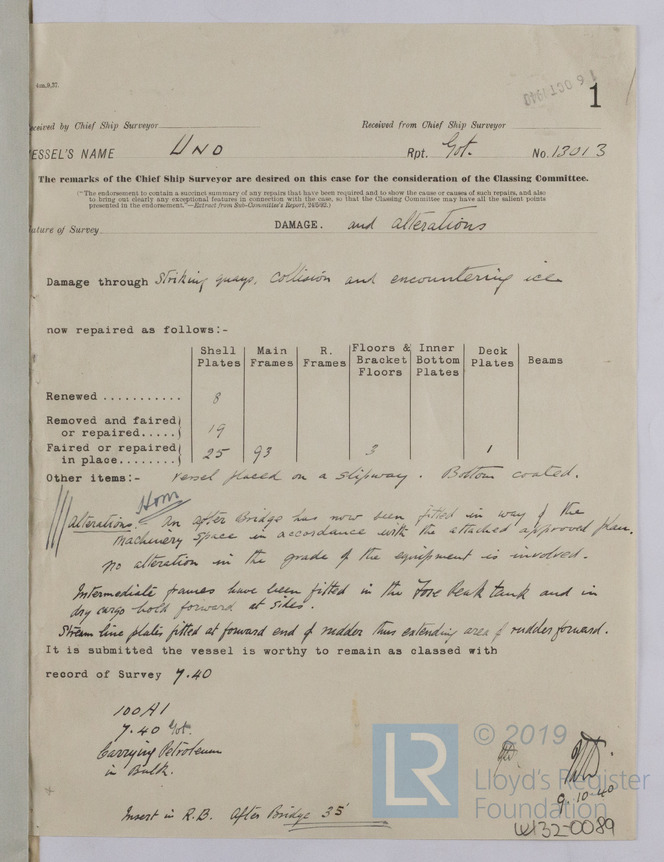 16 OCT 1940
1
Received by Chief Ship Surveyor
Received from Chief Ship Surveyor
VESSEL'S NAME UNO Rpt. Got. No. 13013
The remarks of the Chief Ship Surveyor are desired on this case for the consideration of the Classing Committee.
("The endorsement to contain a succinct summary of any repairs that have been required and to show the cause or causes of such repairs, and also
to bring out clearly any exceptional features in connection with the case, so that the Classing Committee may have all the salient points
presented in the endorsement."—Extract from Sub-Committee's Report,
Nature of Survey DAMAGE. and alterations
Damage through Striking quays, collision and encountering ice
now repaired as follows:-
Shell Plates Main Frames R. Frames Floors & Bracket Floors Inner Bottom Plates Deck Plates Beams
Renewed ........... 8
Removed and faired or repaired..... 19
Faired or repaired in place........ 25 93 3 1
Other items:- Vessel placed on a slipway. Bottom coated.
Alterations. An after Bridge has now been fitted in way of the
machinery space in accordance with the attached approved plan.
No alteration in the grade of the equipment is involved.
Intermediate frames have been fitted in the Fore Peak tank and in
dry cargo hold forward at sides.
Stream line plates fitted at forward end of rudder thus extending area of rudder forward.
It is submitted the vessel is worthy to remain as classed with
record of Survey 7.40
100A1
7.40 Got.
Carrying Petroleum
in Bulk.
9-10-40
Insert in R.B. After Bridge 35'
LR
© 2019
Lloyd's Register
Foundation
W132-0089